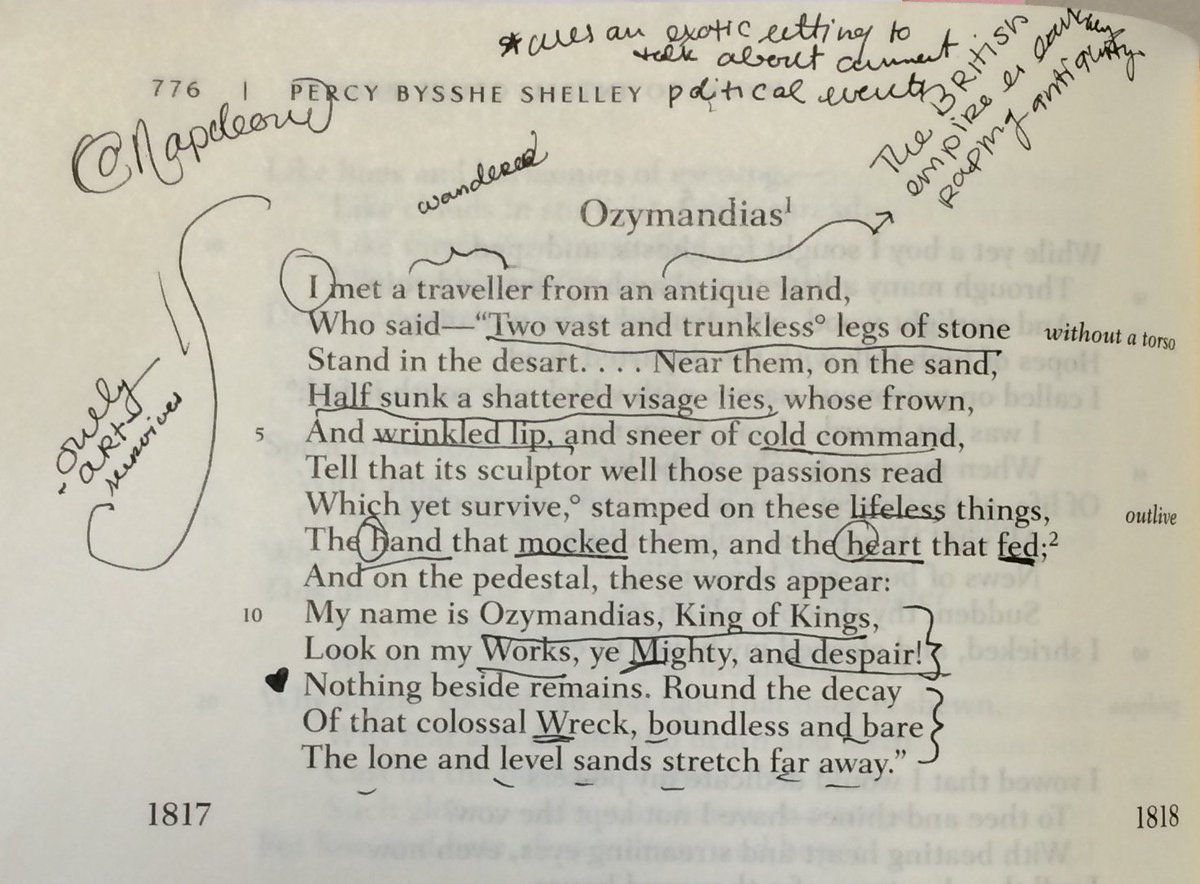 *uses an exotic setting to
talk about current
political events
776 | PERCY BYSSHE SHELLEY
@Napoleon
The BRITISH
empire is
raping antiquity.
wandered
Ozymandias¹
I met a traveller from an antique land,
Who said—“Two vast and trunkless° legs of stone without a torso
Stand in the desart. . . . Near them, on the sand,
Half sunk a shattered visage lies, whose frown,
5 And wrinkled lip, and sneer of cold command,
Tell that its sculptor well those passions read
Which yet survive,° stamped on these lifeless things, outlive
The hand that mocked them, and the heart that fed;²
And on the pedestal, these words appear:
10 My name is Ozymandias, King of Kings,
Look on my Works, ye Mighty, and despair!
Nothing beside remains. Round the decay
Of that colossal Wreck, boundless and bare
The lone and level sands stretch far away.”
1817 1818
-only
ART
survives